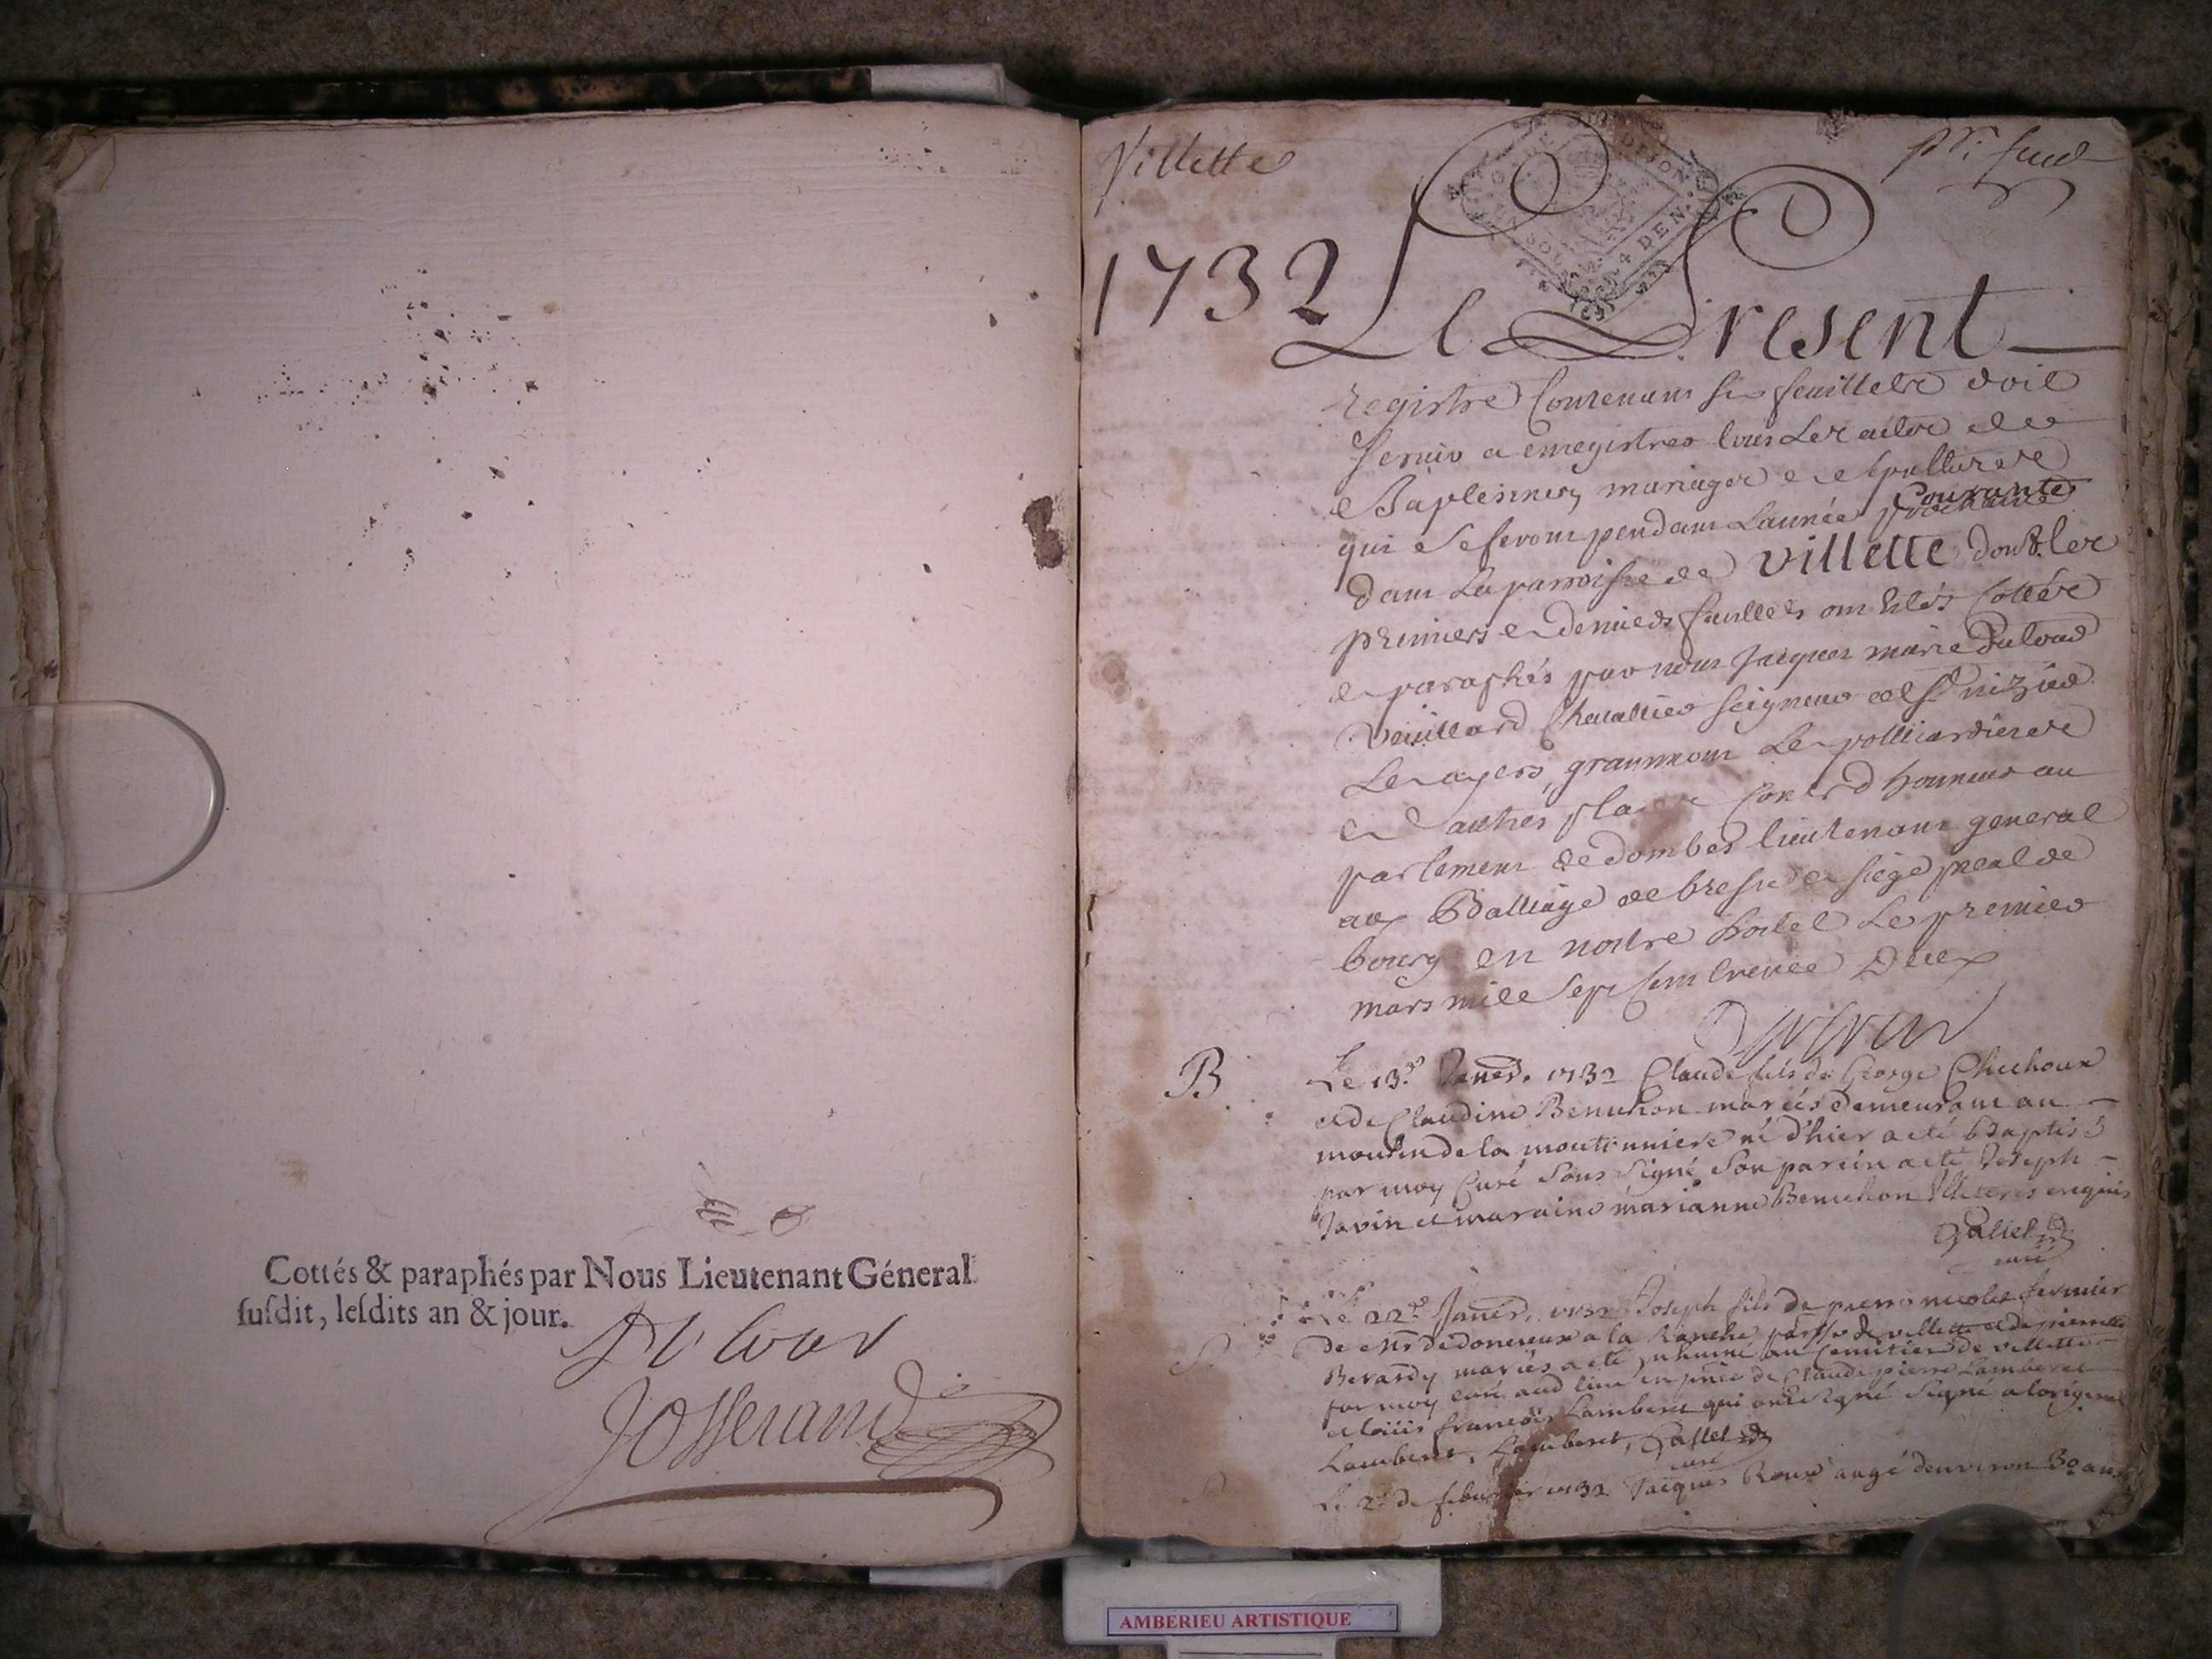 Cottés & paraphés par Nous Lieutenant Géneral
ſuſdit, leſdits an & jour.
Josserand
Villette
DIJON
4 DEN.
1732
Le Present
registre Contenant six feuillets doit
servir a enregistrer tous Les actes de
Baptesmes, mariages et sepultures
qui se feront pendant Lannée Courante
dans La parroisse de villette dont les
premiers et derniers feuillets ont estés Cottés
et paraphés par nous Jacques marie
Chevallier seigneur de St nizier
grammont Le
et autres places honneur au
parlement de dombes lieutenant general
au Balliage de bresse et siege pnal de
bourg en nostre hostel Le premier
mars mile sept Cent trente Deux
B
Le 13e Janer. 1732 Claude fils de George
et de Claudine mariés demeurant au
moulin de la moutonniere né d'hier a eté Baptisé
par moy Curé Sous signé Son parein a eté Joseph
Javin et maraine marianne Illiteres enquis
Gallet
curé
Le 22e Janer. 1732 Joseph fils de pierre fermier
de a la Ranche parsse de villette et de pierrette
Berardy mariés a eté inhumé au Cemitiere de villette
par moy Curé aud lieu en pnce de Claude pierre Lamberet
et loüis françois Lamberet qui ont signé Signé a loriginal
Lamberet, Lamberet, Gallet
curé
Le 2e de febvrier 1732 Jacques Roux aagé denviron 30 ans
AMBERIEU ARTISTIQUE